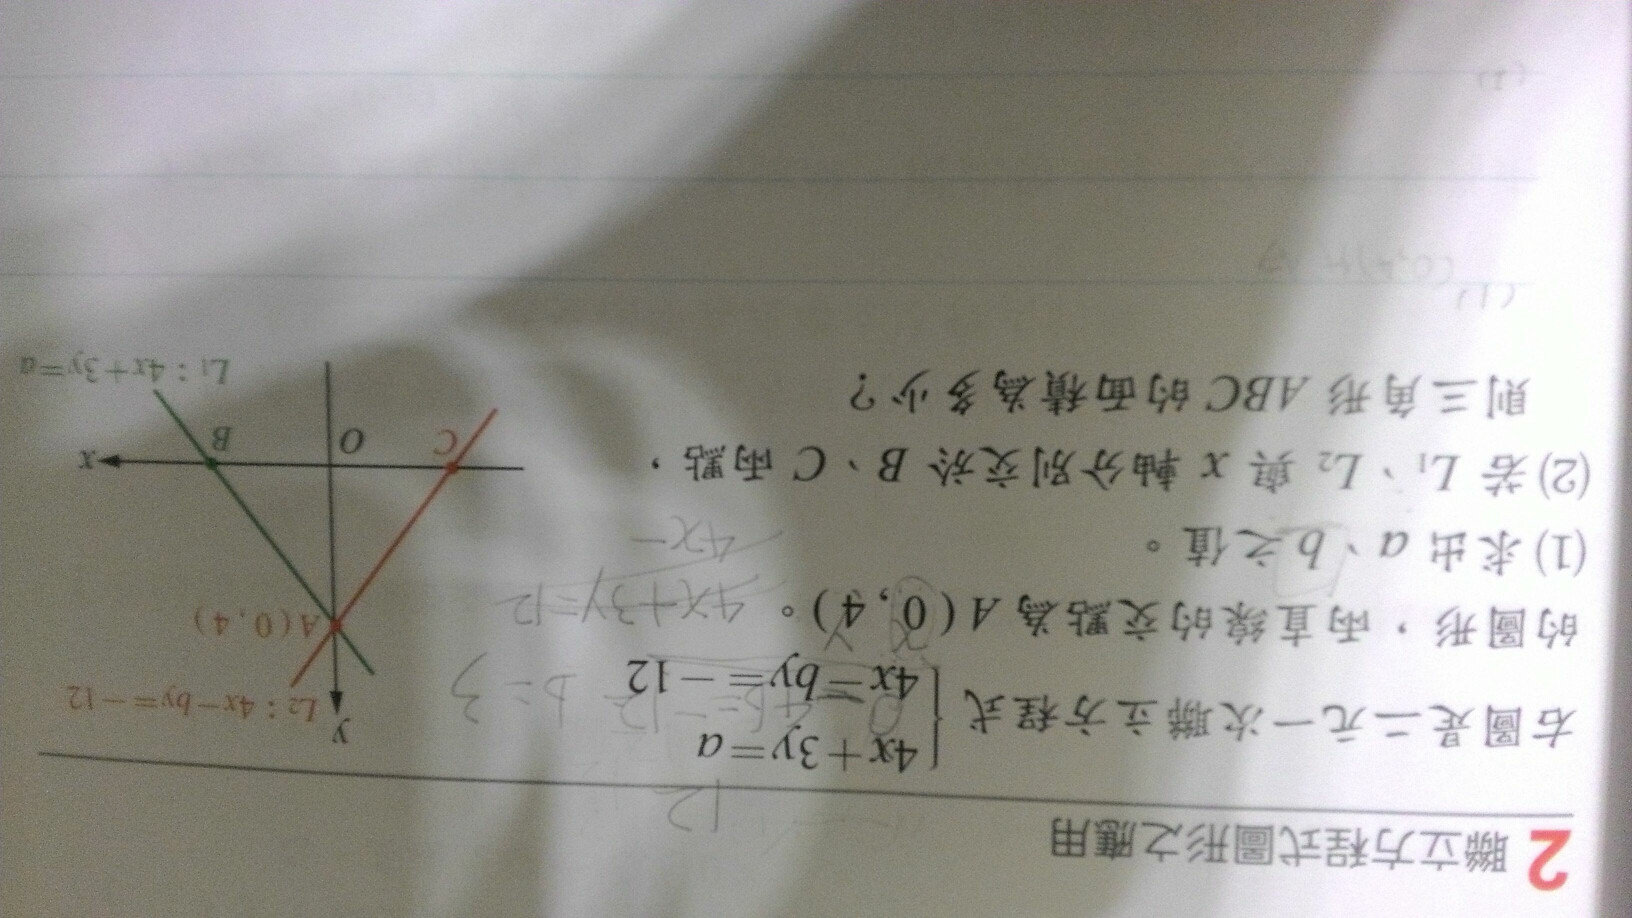 2 聯立方程式圖形之應用
12
右圖是二元一次聯立方程式 { 4x+3y=a
4x-by=-12
的圖形,兩直線的交點為 A(0,4)。
4x+3y=12
4x-
b=3
(1) 求出 a、b 之值。
(2) 若 L₁、L₂ 與 x 軸分別交於 B、C 兩點,
則三角形 ABC 的面積為多少?
y
L₂:4x-by=-12
A(0,4)
C
O
B
x
L₁:4x+3y=a
(1)
(2)